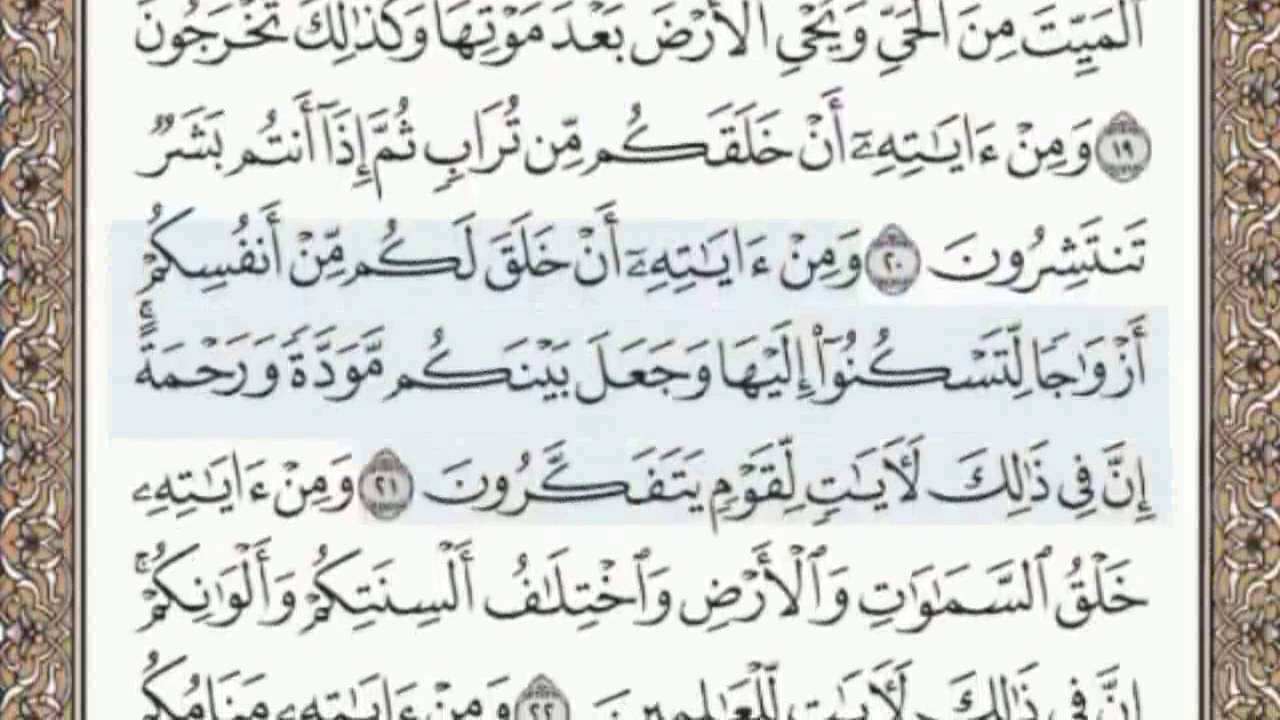 ٱلْمَيِّتَ مِنَ ٱلْحَيِّ وَيُحْيِ ٱلْأَرْضَ بَعْدَ مَوْتِهَا وَكَذَٰلِكَ تُخْرَجُونَ
١٩ وَمِنْ ءَايَـٰتِهِۦٓ أَنْ خَلَقَكُم مِّن تُرَابٍ ثُمَّ إِذَآ أَنتُم بَشَرٌ
تَنتَشِرُونَ ٢٠ وَمِنْ ءَايَـٰتِهِۦٓ أَنْ خَلَقَ لَكُم مِّنْ أَنفُسِكُمْ
أَزْوَٰجًا لِّتَسْكُنُوٓا۟ إِلَيْهَا وَجَعَلَ بَيْنَكُم مَّوَدَّةً وَرَحْمَةً ۚ
إِنَّ فِى ذَٰلِكَ لَـَٔايَـٰتٍ لِّقَوْمٍ يَتَفَكَّرُونَ ٢١ وَمِنْ ءَايَـٰتِهِۦ
خَلْقُ ٱلسَّمَـٰوَٰتِ وَٱلْأَرْضِ وَٱخْتِلَـٰفُ أَلْسِنَتِكُمْ وَأَلْوَٰنِكُمْ ۚ
إِنَّ فِى ذَٰلِكَ لَـَٔايَـٰتٍ لِّلْعَـٰلِمِينَ ٢٢ وَمِنْ ءَايَـٰتِهِۦ مَنَامُكُم